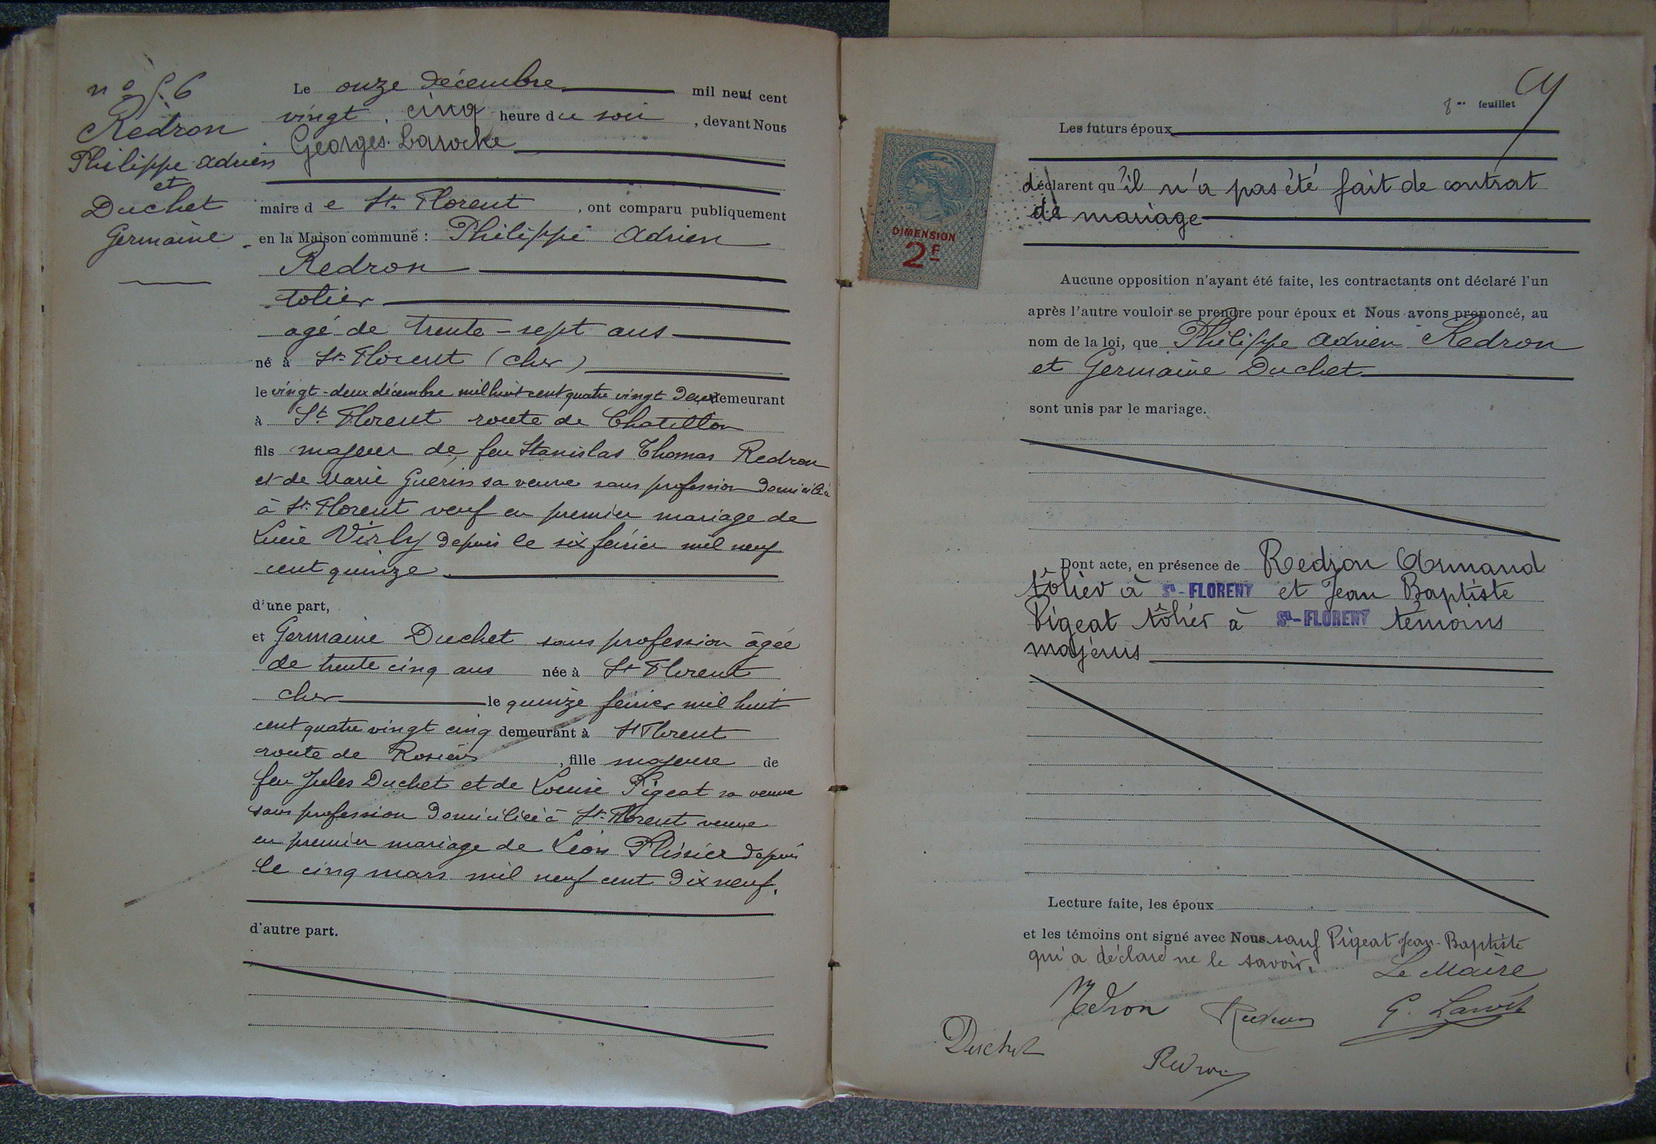 n° 56
Redron
Philippe Adrien
et
Duchet
Germaine
Le onze décembre mil neuf cent
vingt, cinq heure du soir, devant Nous
Georges Laroche
maire de St Florent, ont comparu publiquement
en la Maison commune : Philippe Adrien
Redron
tolier
agé de trente-sept ans
né à St Florent (cher)
le vingt-deux décembre mil huit cent quatre vingt deux demeurant
à St Florent route de Chatillon
fils majeur de feu Stanislas Thomas Redron
et de Marie Guerin sa veuve sans profession domiciliée
à St Florent veuf en premier mariage de
Lucie Virly depuis le six février mil neuf
cent quinze
d'une part,
et Germaine Duchet sans profession âgée
de trente cinq ans née à St Florent
cher le quinze février mil huit
cent quatre vingt cinq demeurant à St Florent
route de Rosières, fille majeure de
feu Jules Duchet et de Louise Pigeat sa veuve
sans profession domiciliée à St Florent veuve
en premier mariage de Léon Plissier depuis
le cinq mars mil neuf cent dix neuf.
d'autre part.
8me feuillet
Les futurs époux
déclarent qu'il n'a pas été fait de contrat
de mariage
DIMENSION
2F
Aucune opposition n'ayant été faite, les contractants ont déclaré l'un
après l'autre vouloir se prendre pour époux et Nous avons prononcé, au
nom de la loi, que Philippe Adrien Redron
et Germaine Duchet
sont unis par le mariage.
Dont acte, en présence de Redron Armand
tôlier à St-FLORENT et Jean Baptiste
Pigeat tôlier à St-FLORENT témoins
majeurs
Lecture faite, les époux
et les témoins ont signé avec Nous sauf Pigeat Jean-Baptiste
qui a déclaré ne le savoir.
Le Maire
Redron Redron G. Laroche
Duchet
Redron